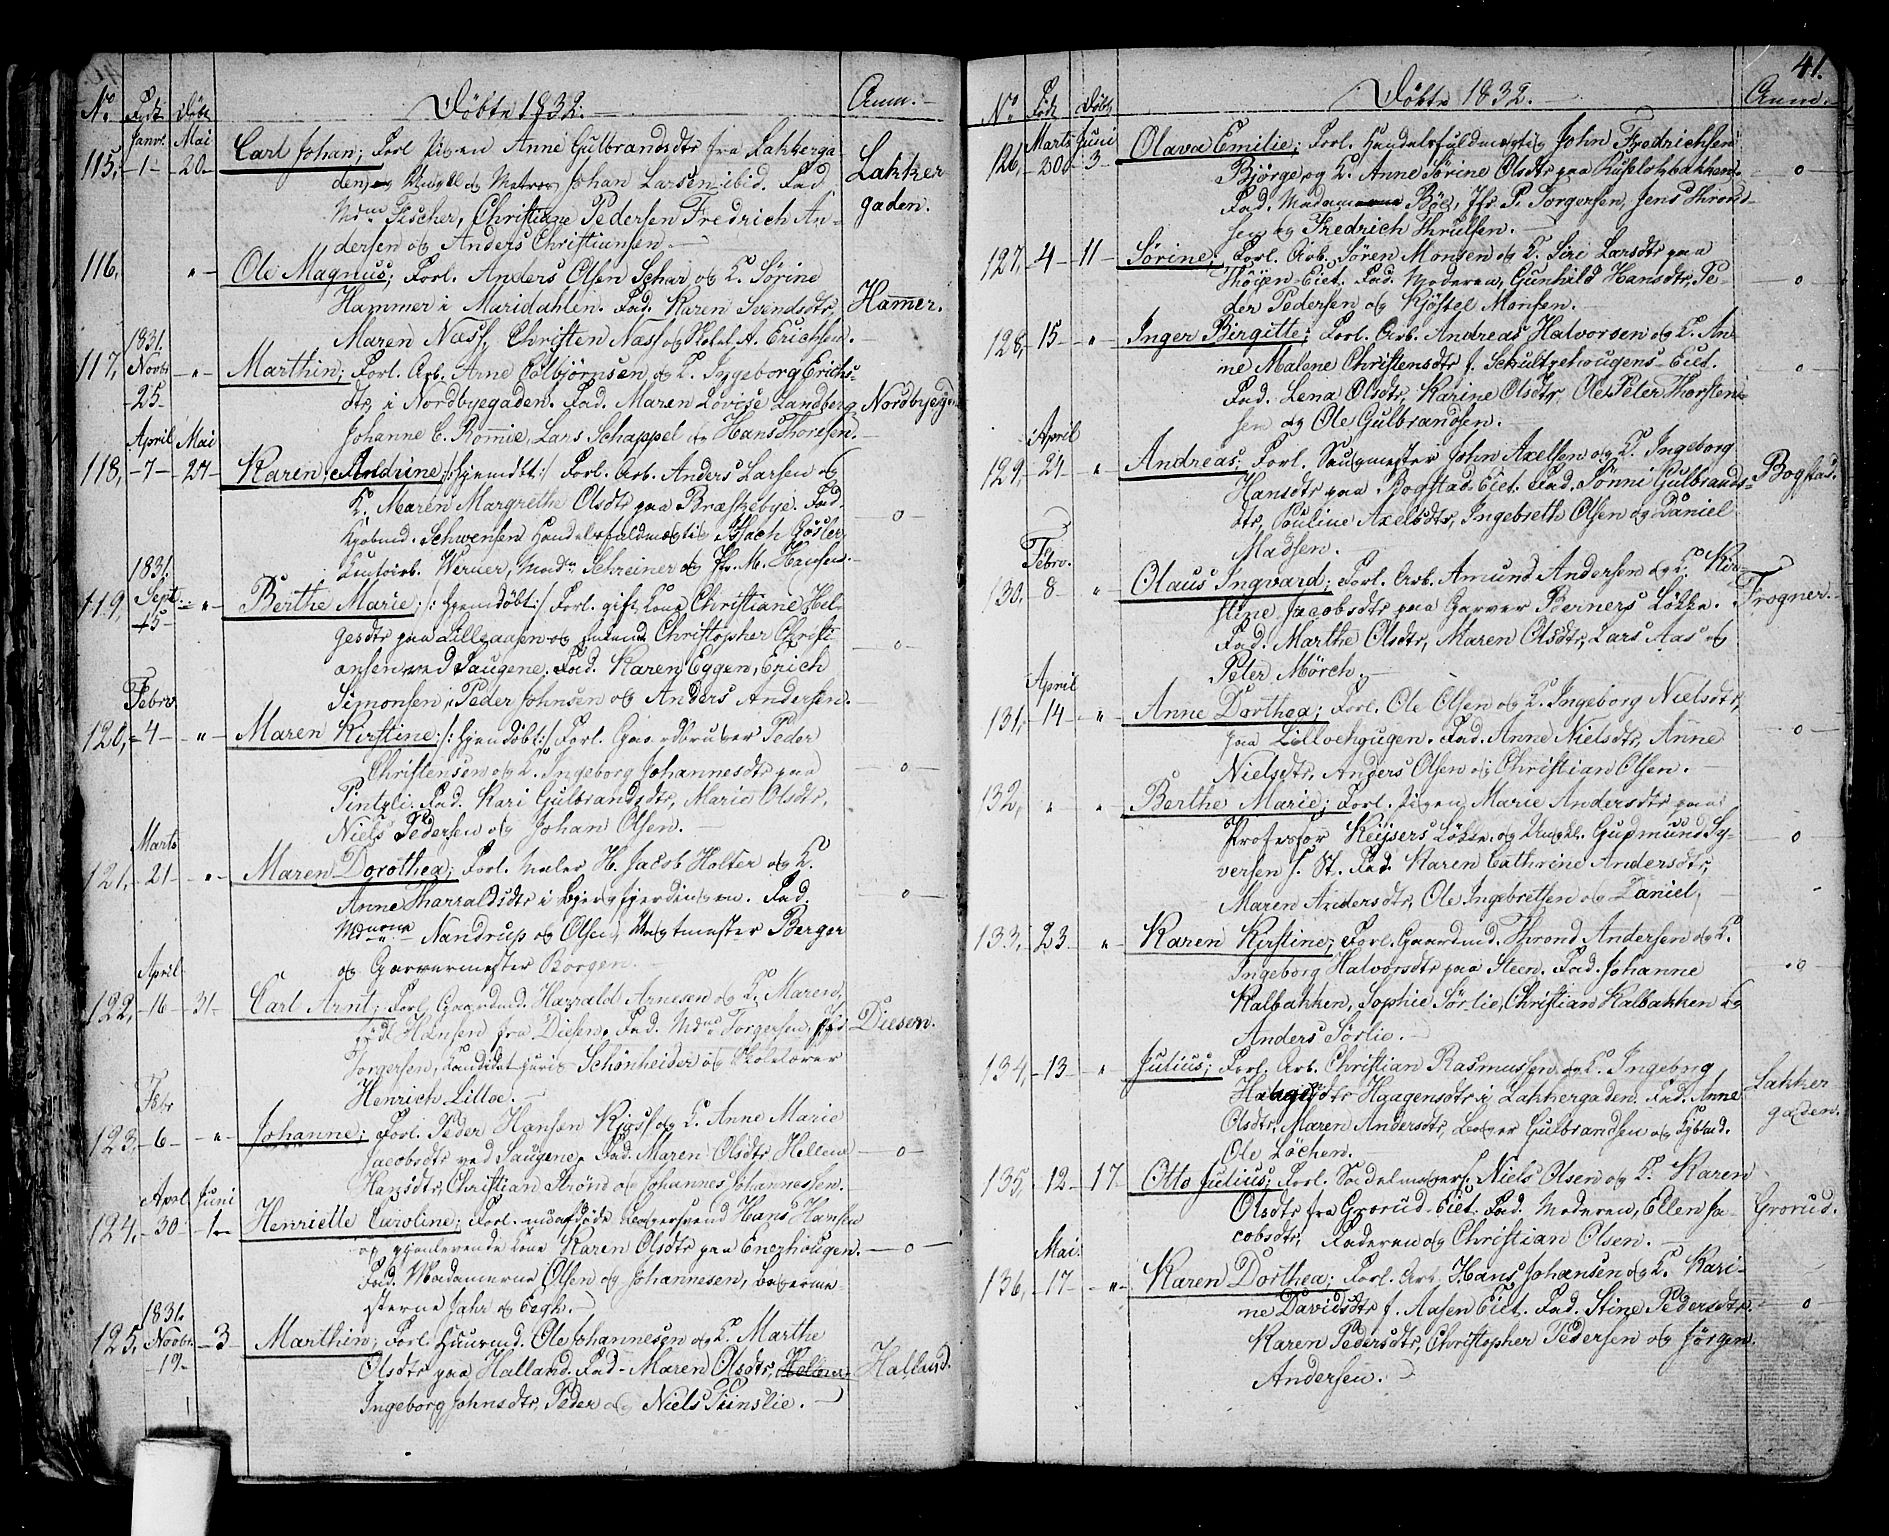 Døbte 1832.
Anm.
No Født Døbt
Janv. Mai
115, -1- -20- Carl Johan; Forl. Pigen Anne Gulbrandsdtr fra Lakkerga
den, og Matros Johan Larsen ibid. Fad.
Lakker
gaden.
Mdm Fischer, Christiane Pedersen Fredrich An-
dersen og Anders Christiansen.
116, " Ole Magnus; Forl. Anders Olsen Schar og K. Sörine
Hammer i Maridahlen. Fad. Karen Svendsdtr,
Hamer.
Maren Næss, Christen Næss og A. Erichsen.
1831.
117, Novbr 25- " Marthin; Forl. Arb. Arne Colbjörnsen og K. Ingeborg Erichs-
dtr, i Nordbyegaden. Fad. Maren Lovise Landberg,
Nordbyeg.
Johanne C. Romie, Lars Schappel og Hans Thoresen.
April Mai
118, -7- -27- Karen Andrine; /:hjemdbt:/ Forl. Arb. Anders Larsen og
K. Maren Margrethe Olsdtr paa Bræskebye. Fad.
Kjøbmd. Schwensen Handelsfuldmægtig Isach Gösler,
-o-
Werner, Mad. Schreiner og Jfr. M. Hansen.
1831.
119, Sept. 15- " Berthe Marie; /:hjemdøbt:/ Forl. gift Kone Christiane Hel-
gesdtr paa Lilleaasen og Christopher Christi-
ansen ved Saugene. Fad. Karen Eggen, Erich
-o-
Simonsen, Peder Johnsen og Anders Andersen.
Febrv
120, -4- " Maren Kirstine; /:hjemdøbt:/ Forl. Gaardbruger Peder
Christensen og K. Ingeborg Johannesdtr paa
-o-
Fad. Kari Gulbrandsdtr, Marie Olsdtr,
Niels Pedersen og Johan Olsen.
Marts
121, -21- " Maren Dorothea; Forl. Maler H. Jacob Holter og K.
Anne Tharraldsdtr i Fad.
-o-
Mdmerne Nandrup og Olsen, Vagtmester Berger
og Garvermester Borgen.
April
122, -16- 31- Carl Arnt; Forl. Gaardmd. Harrald Arnesen og K. Maren
Hansen fra Diesen. Fad. Mdme Torgersen,
Diesen.
Torgersen, Kandidat juris Schönheider og Skolelærer
Henrich Lilloe.
Febr
123, -6- " Johanne; Forl. Peder Hansen og K. Anne Marie
Jacobsdtr ved Saugene. Fad. Maren Olsdtr, Hellene
-o-
Hansdtr, Christian Strönd og Johannes Johannessen.
April Juni
124, -30- -1- Henriette Caroline; Forl. nu afdøde Hans Hansen
og gjenlevende Kone Karen Olsdtr paa Enerhougen.
-o-
Fad. Madamerne Olsen og Johannesen, Bagerme-
sterne Jahr og Eegh.
1831.
125, Novbr. 19- -3 Marthin; Forl. Huusmd. Ole Johannesen og K. Marthe
Olsdtr paa Halland. Fad. Maren Olsdtr, Hellene
Halland.
Ingeborg Johnsdtr, Peder og Niels Tinslie.
41.
Døbte 1832.
Anm.
No Født Døbt
Marts Juni
126, -30- -3- Olava Emilie; Forl. Handelsfuldmægtig John Fredrichsen
Björge og K. Anne Sörine Olsdtr paa Ruseløkbakken.
-o-
Fad. Madamerne Böe, Jfr. P. Torgersen, Jens Thrond-
sen og Fredrich Thrulsen.
127, -4- 11- Sörine; Forl. Arb. Sören Monsen og K. Siri Larsdtr paa
Thöyen-Eiet. Fad. Moderen, Gunhild Hansdtr, Pe-
-o-
der Pedersen og Kjöstel Monsen.
128, -15- " Inger Birgitte; Forl. Arb. Andreas Halvorsen og K. An-
ne Malene Christensdtr f. Schultzehougens-Eiet.
-o-
Fad. Lena Olsdtr, Karine Olsdtr, Ole Peter Thorsten-
sen og Ole Gulbrandsen.
April
129, -24- " Andreas; Forl. Saugmester John Axelsen og K. Ingeborg
Hansdtr paa Bogstad-Eiet. Fad. Tönni Gulbrands-
Bogstad.
dtr, Pauline Axelsdtr, Ingebreth Olsen og Daniel
Madsen.
Febrv.
130, -8- " Olaus Ingvard; Forl. Arb. Amund Andersen og K. Kir-
stine Jacobsdtr paa Garver Berners Løkke.
Frogner.
Fad. Marthe Olsdtr, Maren Olsdtr, Lars Aas og
Peter Mörch.
April
131, -14- " Anne Dorthea; Forl. Ole Olsen og K. Ingeborg Nielsdtr,
paa Lilloehougen. Fad. Anne Nielsdtr, Anne
-o-
Nielsdtr, Anders Olsen og Christian Olsen.
132, " " Berthe Marie; Forl. Pigen Marie Andersdtr paa
Professor Keijsers Løkke og Gudmund Sy-
-o-
versen f. St. Fad. Karen Cathrine Andersdtr,
Maren Andersdtr, Ole Ingebretsen og Daniel,
133, -23- " Karen Kirstine; Forl. Gaardmd. Thrond Andersen og K.
Ingeborg Halvorsdtr paa Steen. Fad. Johanne
-o-
Kalbakken, Sophie Sörlie, Christian Kalbakken og
Anders Sörlie.
134, -13- " Julius; Forl. Arb. Christian Rasmussen og K. Ingeborg
Haagensdtr i Lakkergaden. Fad. Anne
Lakker-
gaden.
Olsdtr, Maren Andersdtr, Gulbrandsen og
Ole Löchen.
135, -12- 17- Otto Julius; Forl. Sadelmagers. Niels Olsen og K. Karen
Olsdtr fra Grorud-Eiet. Fad. Moderen, Ellen Ja-
Grorud.
cobsdtr, Faderen og Christian Olsen.
Mai
136, -17- " Karen Dorthea; Forl. Arb. Hans Johansen og K. Kari-
ne Davidsdtr f. Aasen Eiet. Fad. Stine Pedersdtr
-o-
Karen Pedersdtr, Christopher Pedersen og Jörgen
Andersen.